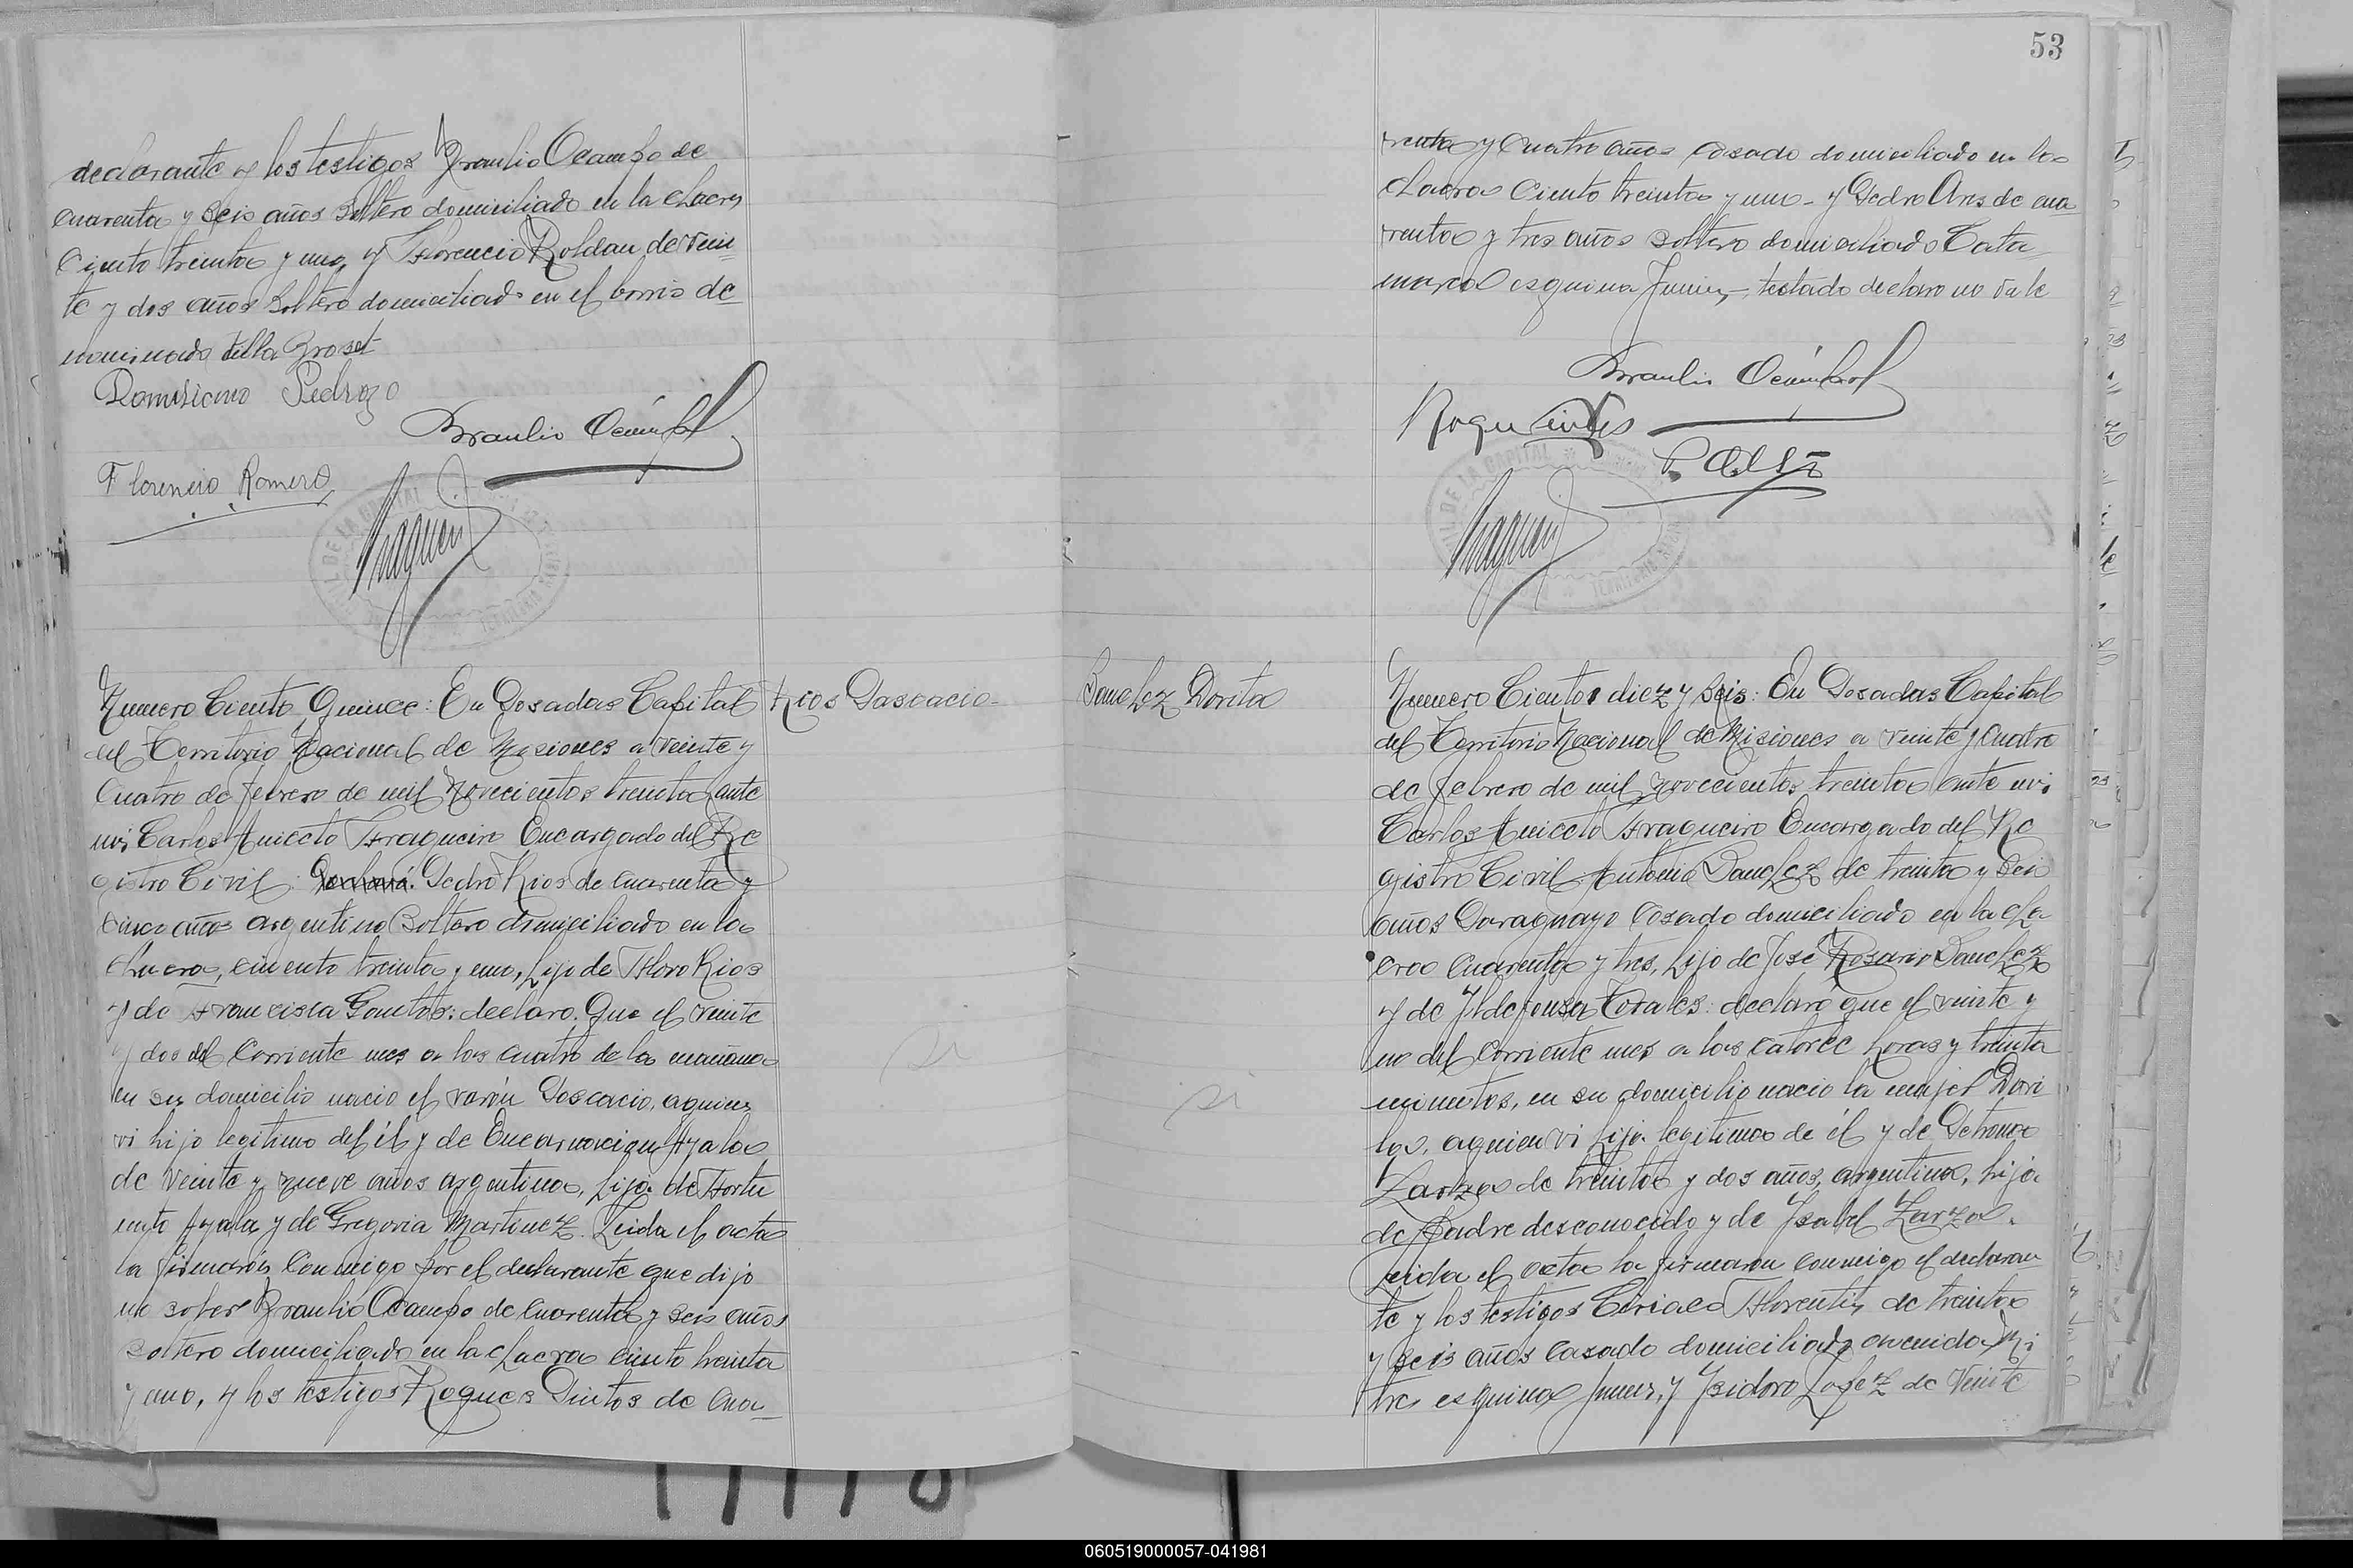 declarante y los testigos Braulio Ocampo de
cuarenta y seis años soltero domiciliado en la chacra
Ciento treinta y uno, y Florencio Roldan de vein
te y dos años soltero domiciliado en el barrio de
nominado Villa
Pedrozo
Braulio Ocampo
Florencio Romero
Numero Ciento Quince: En Posadas Capital
del Territorio Nacional de Misiones a veinte y
Cuatro de febrero de mil Novecientos treinta, ante
mi Carlos Aniceto Fragueiro Encargado del Re
gistro Civil: Declaró. Pedro Rios de cuarenta y
cinco años argentino Soltero domiciliado en la
chacra, ciento treinta y uno, hijo de Floro Rios
y de Francisca declaro. Que el veinte
y dos del Corriente mes a las cuatro de la mañana
en su domicilio nacio el varón Pascacio, a quien
vi hijo legitimo del él y de Encarnacion Ayala
de veinte y nueve años argentina, hija de Fortu
nato Ayala, y de Gregoria Martinez. Leida el acta
la firmarón Conmigo por el declarante que dijo
no saber Braulio Ocampo de cuarenta y seis años
soltero domiciliado en la chacra ciento treinta
y uno, y los testigos Roques Pintos de cua
Rios Pascacio
si
53
renta y cuatro años casado domiciliado en la
chacra Ciento treinta y uno - y Pedro Ares de cua
renta y tres años soltero domiciliado Cata
marca esquina Junin, - testado declaro no vale
Braulio Ocampo
Roque Pintos
Sanchez Dorila
si
Numero Cientos diez y seis: En Posadas Capital
del Territorio Nacional de Misiones a veinte y cuatro
de febrero de mil novecientos treinta ante mi
Carlos Aniceto Fragueiro Encargado del Re
gistro Civil Antonio Sanchez de treinta y seis
años Paraguayo Casado domiciliado en la cha
cra Cuarenta y tres, hijo de José Rosario Sanchez
y de Yldefonsa declaró que el veinte y
uno del corriente mes a las catorce horas y treinta
minutos, en su domicilio nacio la mujer Dori
la, a quien vi hija legitima de él y de Petrona
Zarza de treinta y dos años, argentina, hija
de Padre desconocido y de Ysabel Zarza.
Leida el acta la firmaron conmigo el declaran
te y los testigos Ciriaco Florentin de treinta
y seis años casado domiciliado avenida Mi
tre esquina Junin, y Ysidoro Lopez de Veinte
060519000057-041981